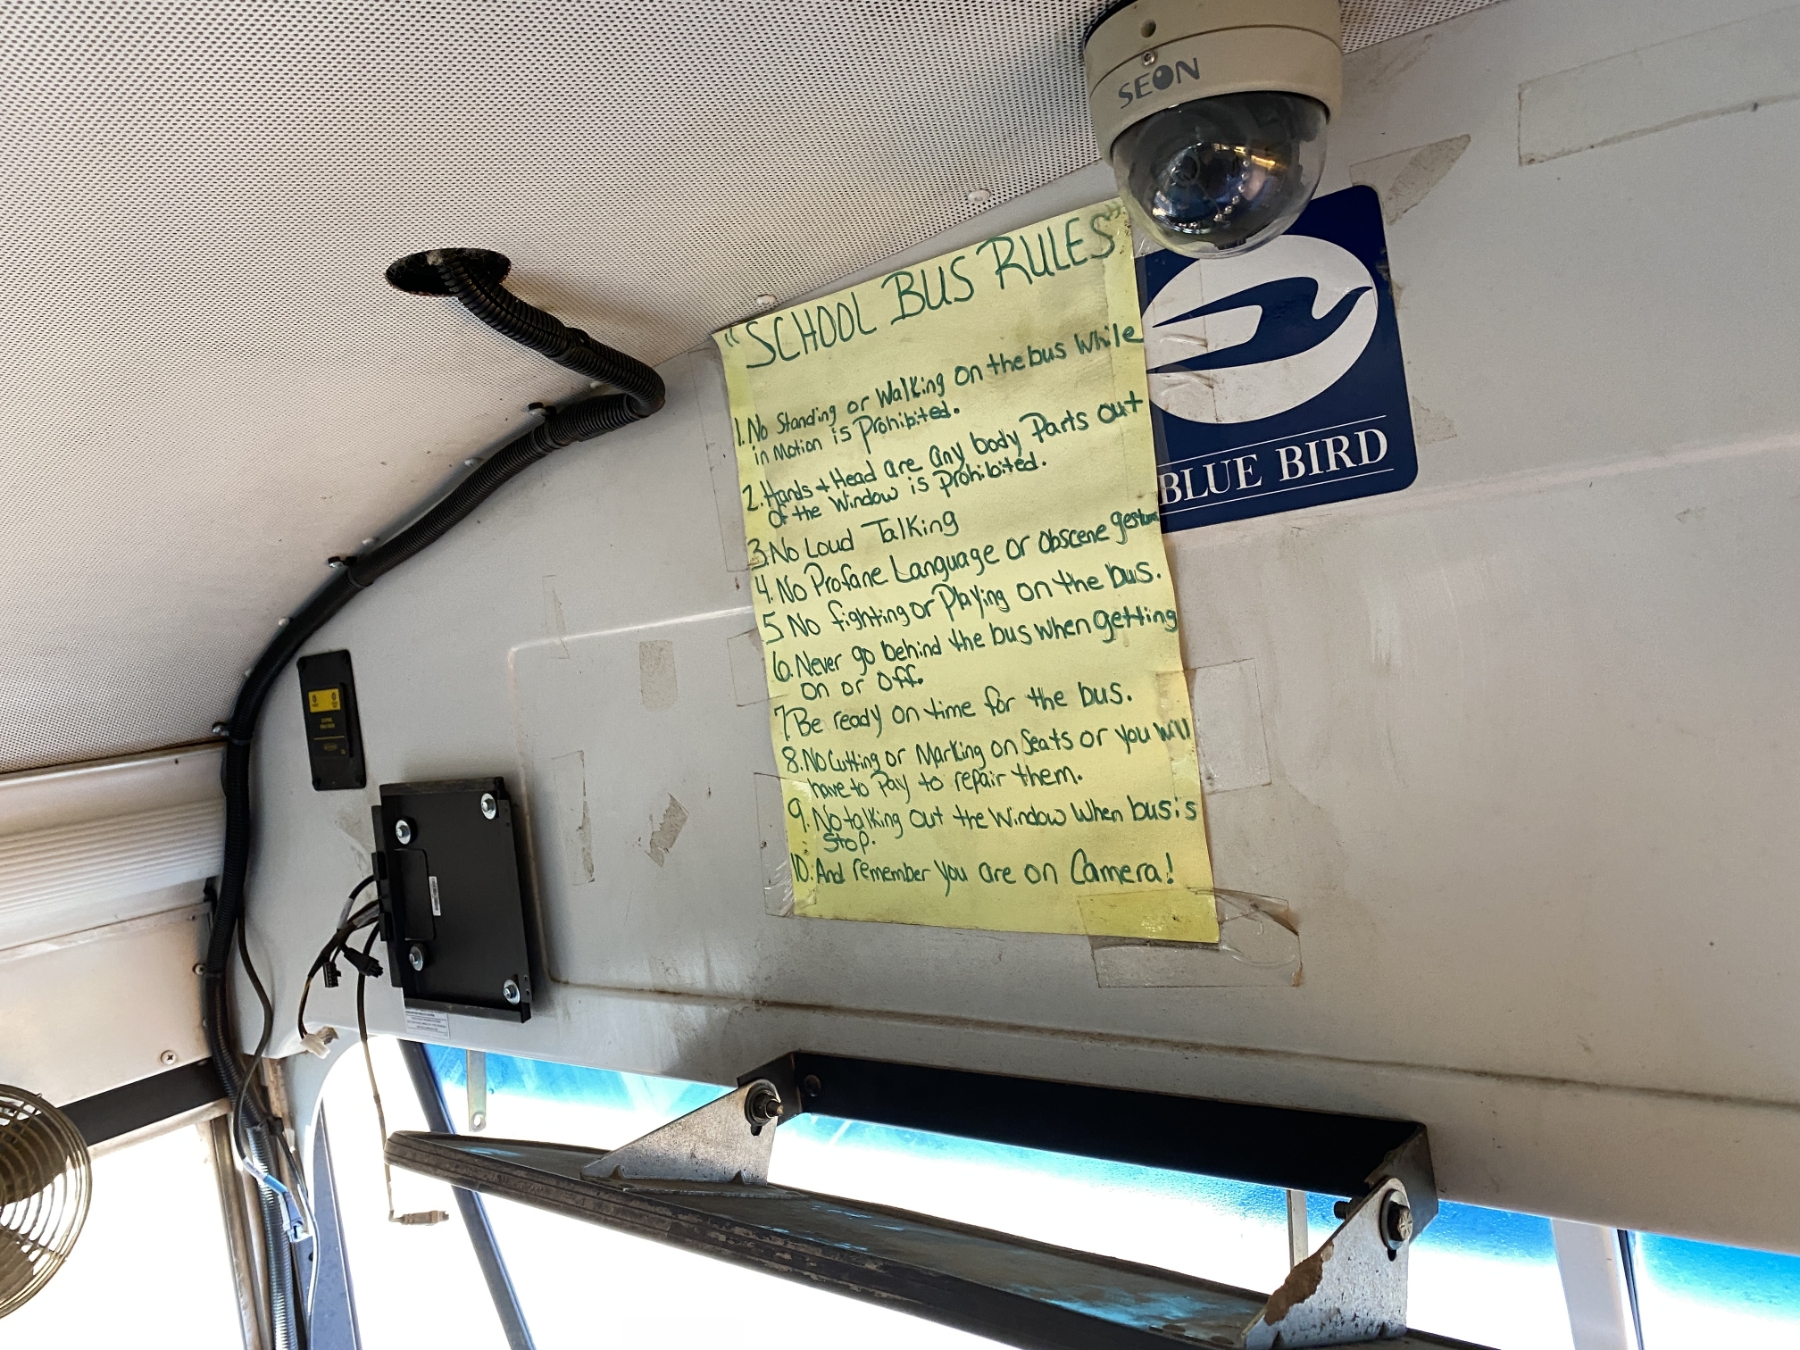 SEON
"SCHOOL BUS RULES"
1. No Standing or Walking on the bus while
in Motion is Prohibited.
2. Hands + Head are any body Parts out
Of the Window is Prohibited.
3. No Loud Talking
4. No Profane Language or obscene gestures
5 No fighting or Playing on the bus.
6. Never go behind the bus when getting
on or off.
7 Be ready on time for the bus.
8. No Cutting or Marking on Seats or you will
have to Pay to repair them.
9. No talking out the Window When bus is
Stop.
10. And remember you are on Camera!
BLUE BIRD